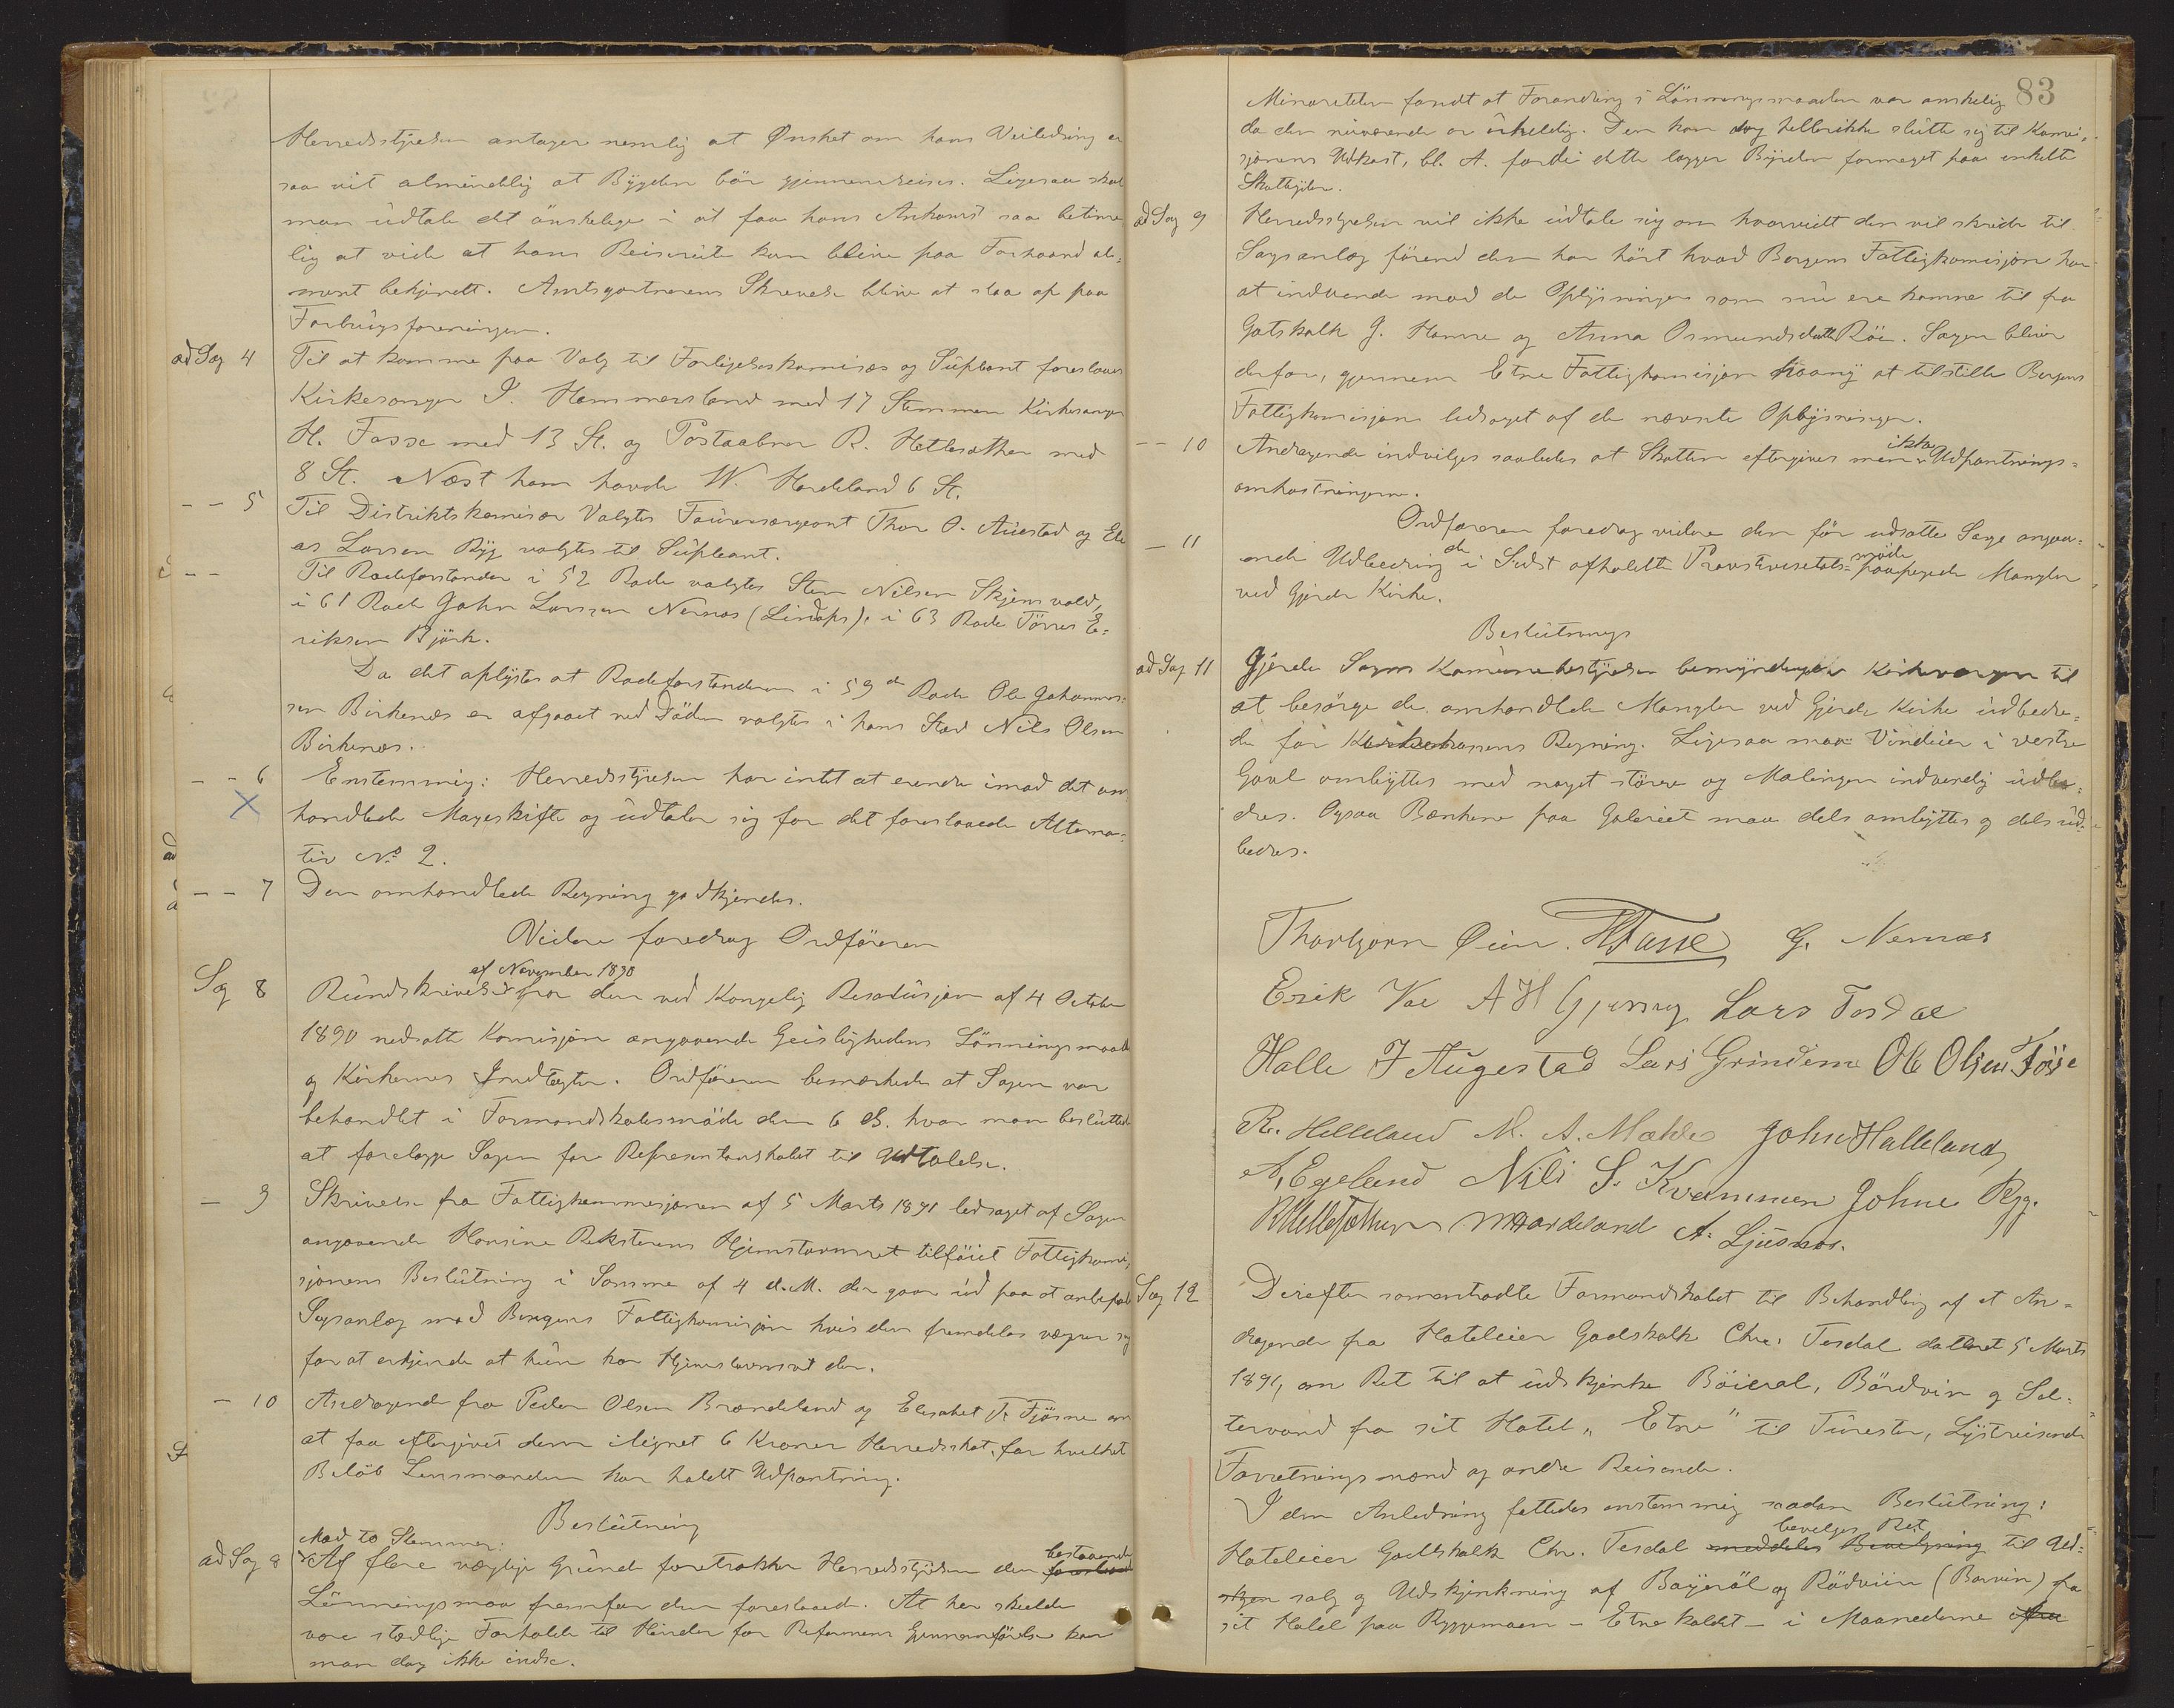 Herredsstyrelsen antager nemlig at Ønsket om hans Veiledning er
saa vit almindelig at Bygden bør gjennemreises. Ligesaa skal
man udtale det ønskelige i at faa hans Ankomst saa betime
lig at vide at hans Reiserute kan blive paa Forhaand al=
ment bekjendt. Amtsgartnerens Skrivelse blive at slaa op paa
Forbrugsforeningen.
ad Sag 4 Til at komme paa Valg til Forligelseskomisær og Suppleant foreslaaes
Kirkesanger I. Hammersland med 17 Stemmer Kirkesanger
H. Fasse med 13 St. og Postaabner R. Hetlesæther med
8 St. Næst ham havde W. Hardeland 6 St.
– – 5 Til Distriktskomisær Valgtes Fourersergeant Thor O. Austad og Eli
as Larsen Ryg valgtes til Supleant.
– – Til Rodeforstander i 52 Rode valgtes Sten Nilsen Skjensvold,
i 61 Rode John Larssen Nernæs (Lindøks). i 63 Rode Tørres E=
riksen Bjørk.
Da det oplystes at Rodeforstanderen i 59de Rode Ole Johannes=
sen Birkenes er afgaaet ved Døden valgtes i hans Sted Nils Olsen
Birkenes.
– – 6 Enstemmig: Herredsstyrelsen har intet at erindre imod det om
handlede Mageskifte og udtaler sig for det foreslaaede Alterna=
tiv No 2.
– – 7 Den omhandlede Regning godkjendes.
Videre foredrog Ordføreren
af November 1890
Sag 8 Rundskrivelse fra den ved Kongelig Resolusjon af 4 October
1890 nedsatte Komisjon angaaende Geistlighedens Lønningsmaade
og Kirkernes Indtægter. Ordføreren bemærkede at Sagen var
behandlet i Formandskabsmøde den 6 ds. hvor man besluttede
at forelægge Sagen for Representantskabet til Udtalelse.
– 9 Skrivelse fra Fattigkommisjonen af 5 Marts 1891 ledsaget af Sagen
angaaende Hansine Reksterens Hjemstavnsret tilføiet Fattigkomi
sjonens Beslutning i Samme af 4 d.M. der gaar ud paa at anbefale
Sagsanlæg mod Bergens Fattigkomisjon hvis den fremdeles vægrer sig
for at erkjende at hun har Hjemstavnsret der.
– 10 Andragende fra Peder Olsen Brændeland og Elisabet T. Fjøsne om
at faa eftergivet dem ilignet 6 Kroner Herredsskat, for hvilket
Beløb Lensmanden har holdt Udpantning.
Beslutning
Med to Stemmer:
ad Sag 8 Af flere vægtige Grunde foretrækker Herredsstyrelsen den bestaaende
Lønningsmaa fremfor den foreslaaede. At her skulde
være stedlige Forholde til Hinder for Reformens Gjennemførelse kan
man dog ikke indse.
83
Minoriteten fandt at Forandring i Lønningsmaaden var ønskelig
da den nuværende er uheldig. Den kan dog hellerikke slutte sig til Komi=
sjonens Udkast, bl. A. fordi dette lægger Byrden formeget paa enkelte
Skatteyder.
ad Sag 9 Herredsstyrelsen vil ikke udtale sig om hvorvidt den vil skride til
Sagsanlæg førend den har hørt hvad Bergens Fattigkomisjon har
at indvende mod de Oplysninger som nu ere komne til fra
Gotskalk J. Hamre og Anna Osmundsdatter Røe. Sagen bliver
derfor, gjennem Etne Fattigkomisjon paany at tilstille Bergens
Fattigkomisjon ledsaget af de nævnte Oplysninger.
– – 10 Andragende indvilges saaledes at Skatten eftergives men ikke Udpantnings=
omkostningerne.
– 11 Ordføreren foredrog videre den før udsatte Sag angaa=
ende Udbedring de i Sidst afholdte Provstevisetats= møde paapegede Mangler
ved Gjerde Kirke.
Beslutnings
ad Sag 11 Gjerde Sogns Kommunebestyrelse bemyndiger Kirkevergen til
at besørge de omhandlede Mangler ved Gjerde Kirke udbedre=
de for Kirkekassens Regning. Ligesaa maa Vinduer i vestre
Gavl ombyttes med noget større og Malingen indvendig udbe=
dres. Ogsaa Bænkene paa Galeriet maa dels ombyttes og dels ud=
bedres.
Thorbjørn Øien. HFasse G. Nernæs
Erik Vae A H Gjerny Lars Tesdal
Halle J Augestad Lars Grindem Ole Olsen Føse
R. Helleland M. A. Mæhle John Halleland
A. Egeland Nils S. Kvammen Johne Ryg.
RHetlesæther WHardeland A. Ljusnes.
Sag 12 Derefter sammentraadte Formandskabet til Behandling af et An=
dragende fra Hoteleier Godskalk Chr. Tesdal dateret 5 Marts
1891, om Ret til at udskjenke Bøierøl, Bördvin og Sel=
tervand fra sit Hotel „Etne" til Turester, Lystreisende
Forretningsmænd og andre Reisende.
I den Anledning fattedes enstemmig saadan Beslutning:
bevilges Ret
Hoteleier Godskalk Chr. Tesdal meddeles Bevilgning til Ud=
salg og Udskjænkning af Bayerøl og Rødvin (Barvin) fra
sit Hotel paa Ryggmoen – Etne kaldt – i Maanederne fra